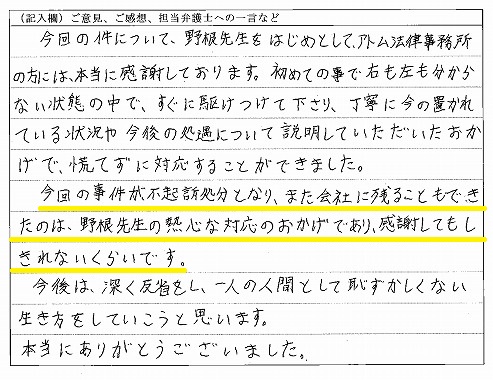 (記入欄)ご意見、ご感想、担当弁護士への一言など
今回の件について、野根先生をはじめとして、アトム法律事務所
の方には、本当に感謝しております。初めての事で右も左も分から
ない状態の中で、すぐに駆けつけて下さり、丁寧に今の置かれ
ている状況や今後の処遇について説明していただいたおか
げで、慌てずに対応することができました。
今回の事件が不起訴処分となり、また会社に残ることもでき
たのは、野根先生の熱心な対応のおかげであり、感謝してもし
きれないくらいです。
今後は、深く反省をし、一人の人間として恥ずかしくない
生き方をしていこうと思います。
本当にありがとうございました。